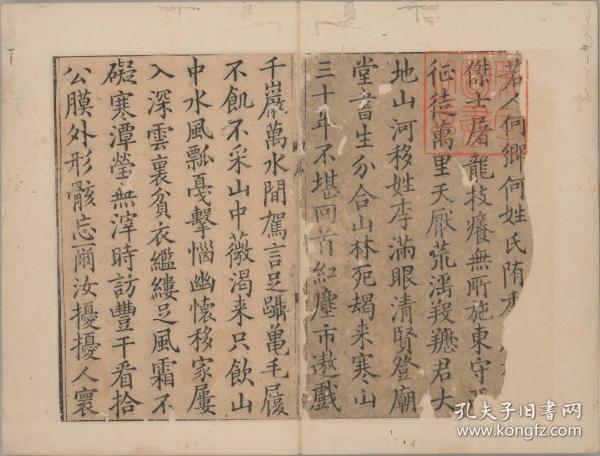 若人何鄉何姓氏隋
傑士屠龍技癢無所施東守
征徒萬里天厭荒滛毅魓君大
地山河移姓李滿眼清賢登廟
堂書生分合山林死朅来寒山
三十年不堪回首紅塵市遨戯
千巖萬水間駕言足躡亀毛屨
不飢不采山中薇渴来只飲山
中水風瓢戞擊惱幽懷移家屢
入深雲裏貧衣繿縷足風霜不
礙寒潭瑩無滓時訪豐干看拾
公膜外形骸忘爾汝擾擾人寰
孔夫子旧書网
www.kongfz.com